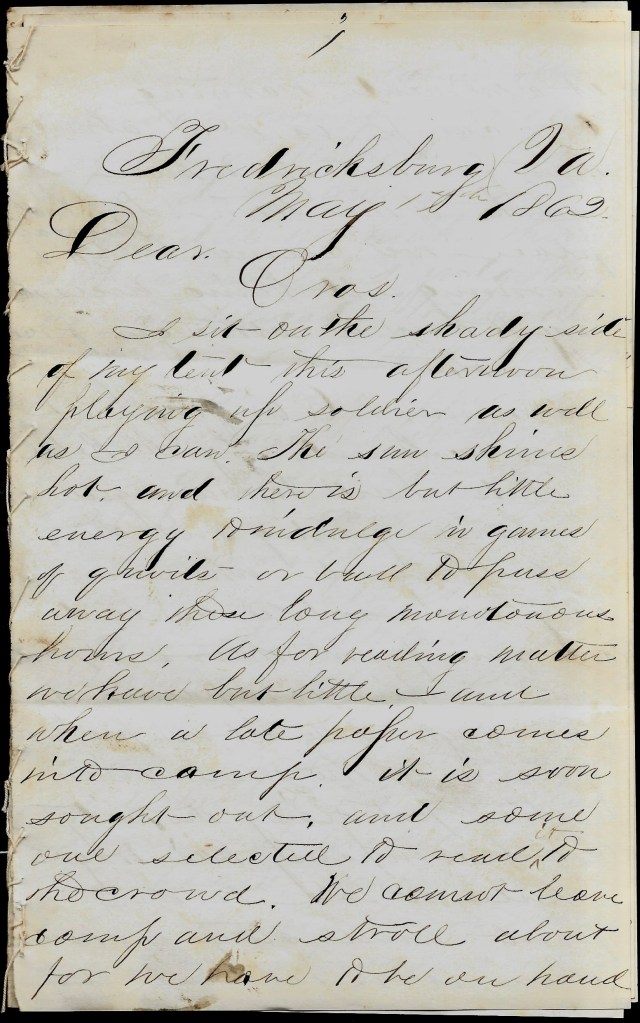 1
Fredricksburg Va.
May 18th 1862.
Dear.
Bros.
I sit on the shady side
of my tent this afternoon
playing up soldier as well
as I can. The sun shines
hot. and there is but little
energy to indulge in games
of quoits or ball to pass
away these long monotonous
hours. As for reading matter
we have but little. and
when a late paper comes
into camp. it is soon
sought out. and some
one selected to read it to
the crowd. We cannot leave
camp and stroll about
for we have to be on hand